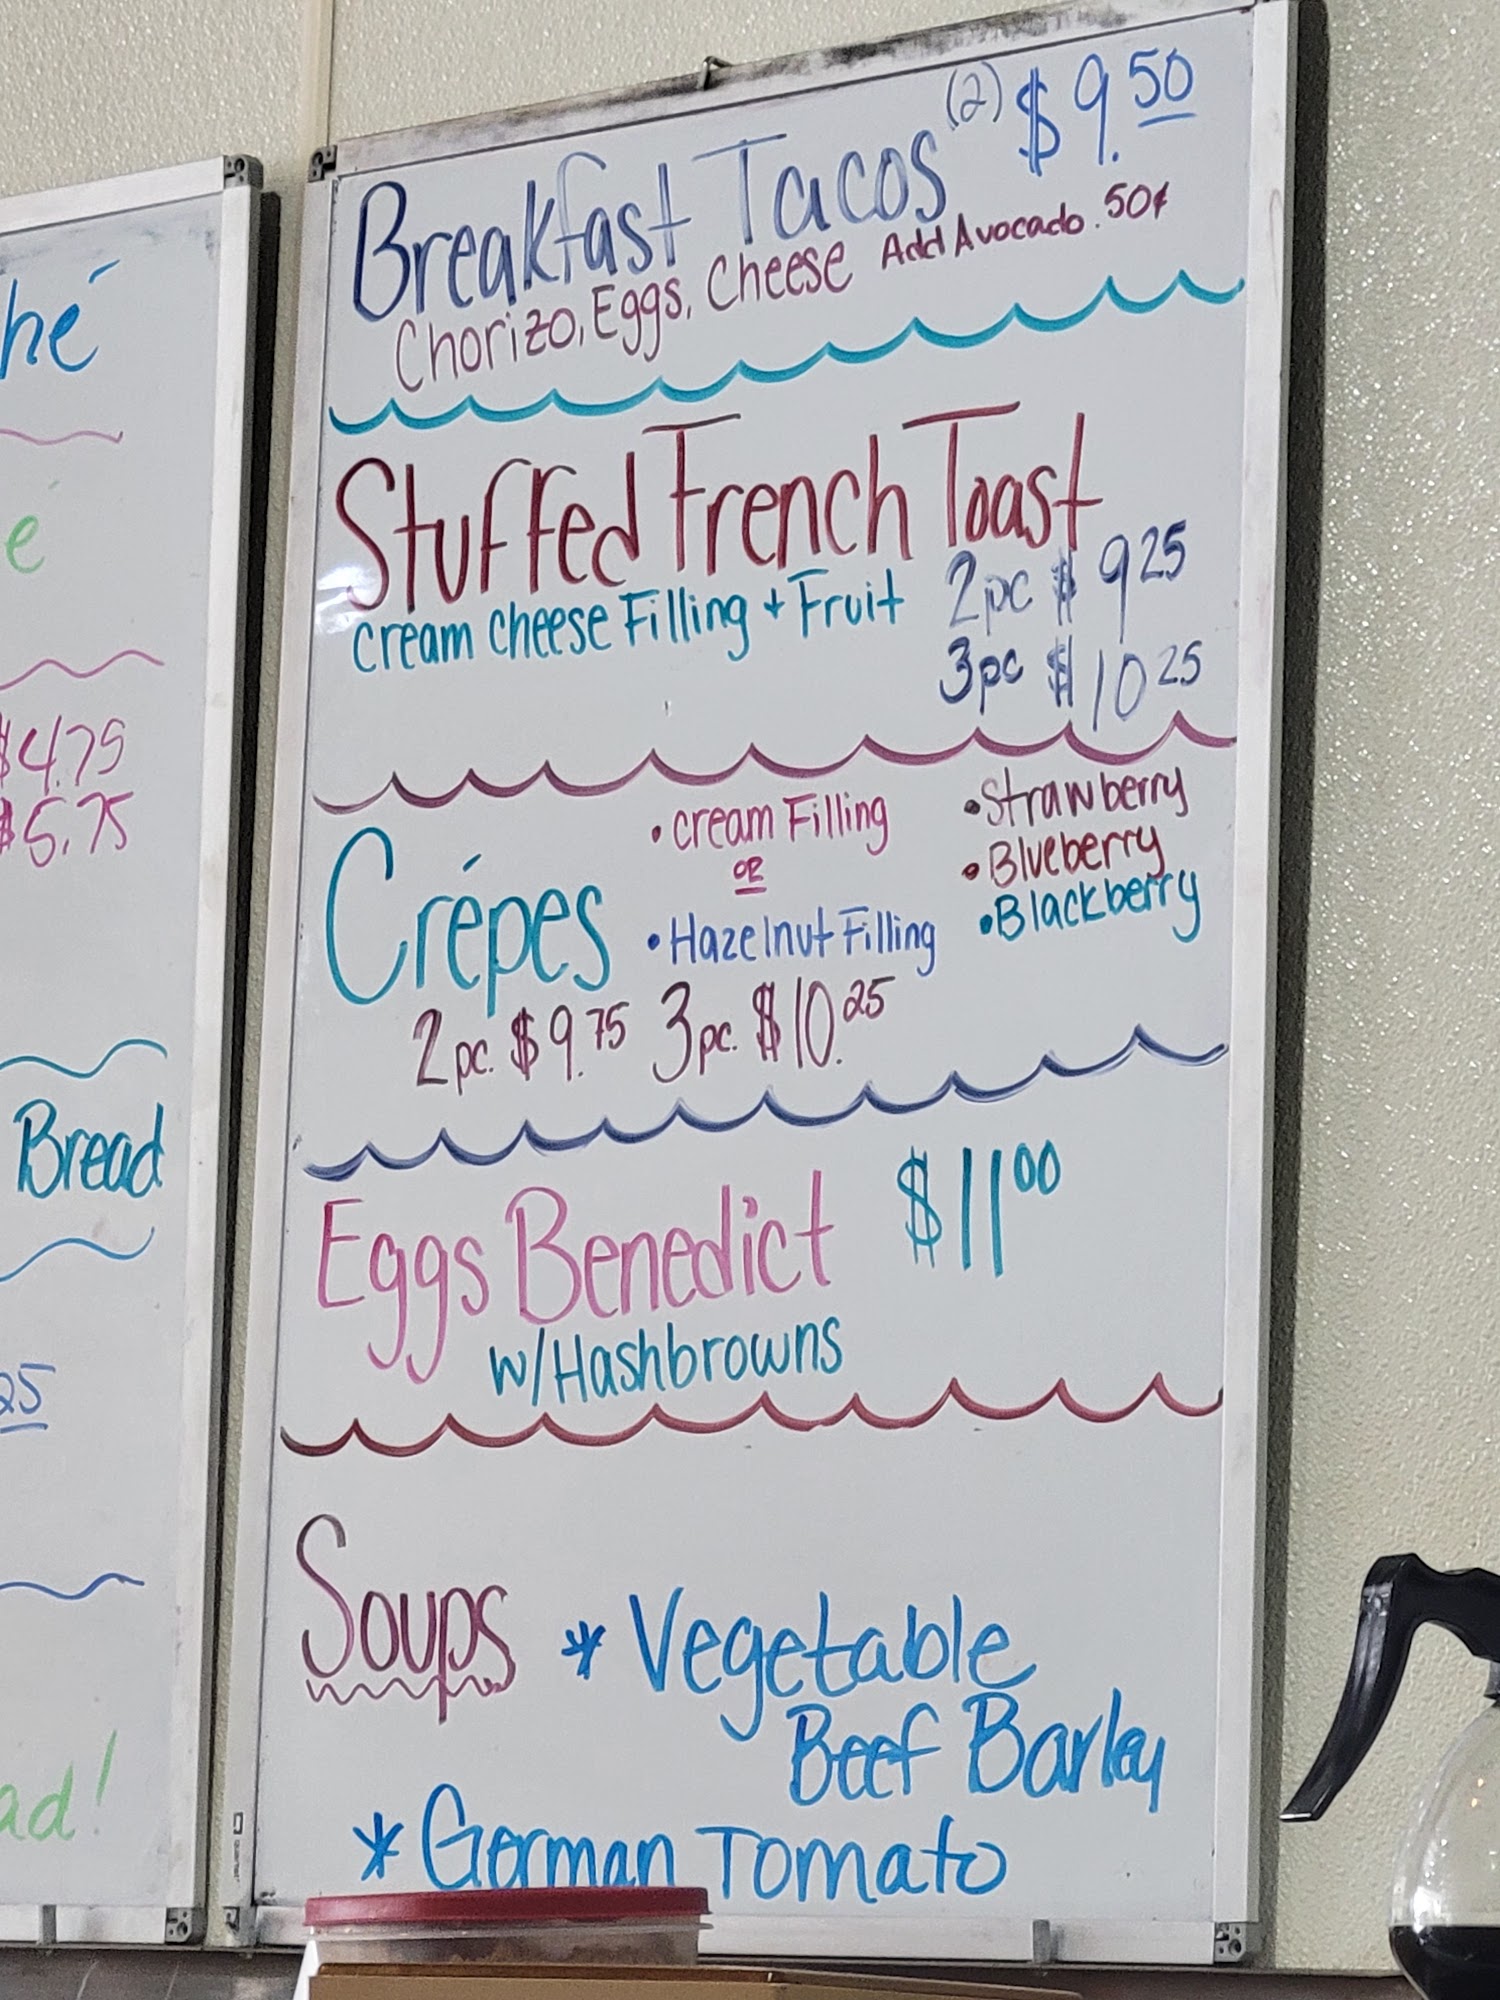 hé
é
$4.75
$5.75
Bread
25
ad!
Breakfast Tacos (2) $9.50
Chorizo, Eggs, Cheese Add Avocado .50¢
Stuffed French Toast
cream cheese Filling + Fruit 2pc $9 25
3pc $10 25
Crépes
• cream Filling
OR
• Hazelnut Filling
• Strawberry
• Blueberry
• Blackberry
2pc. $9.75 3pc. $10.25
Eggs Benedict $11 00
w/Hashbrowns
Soups * Vegetable
Beef Barley
* German Tomato